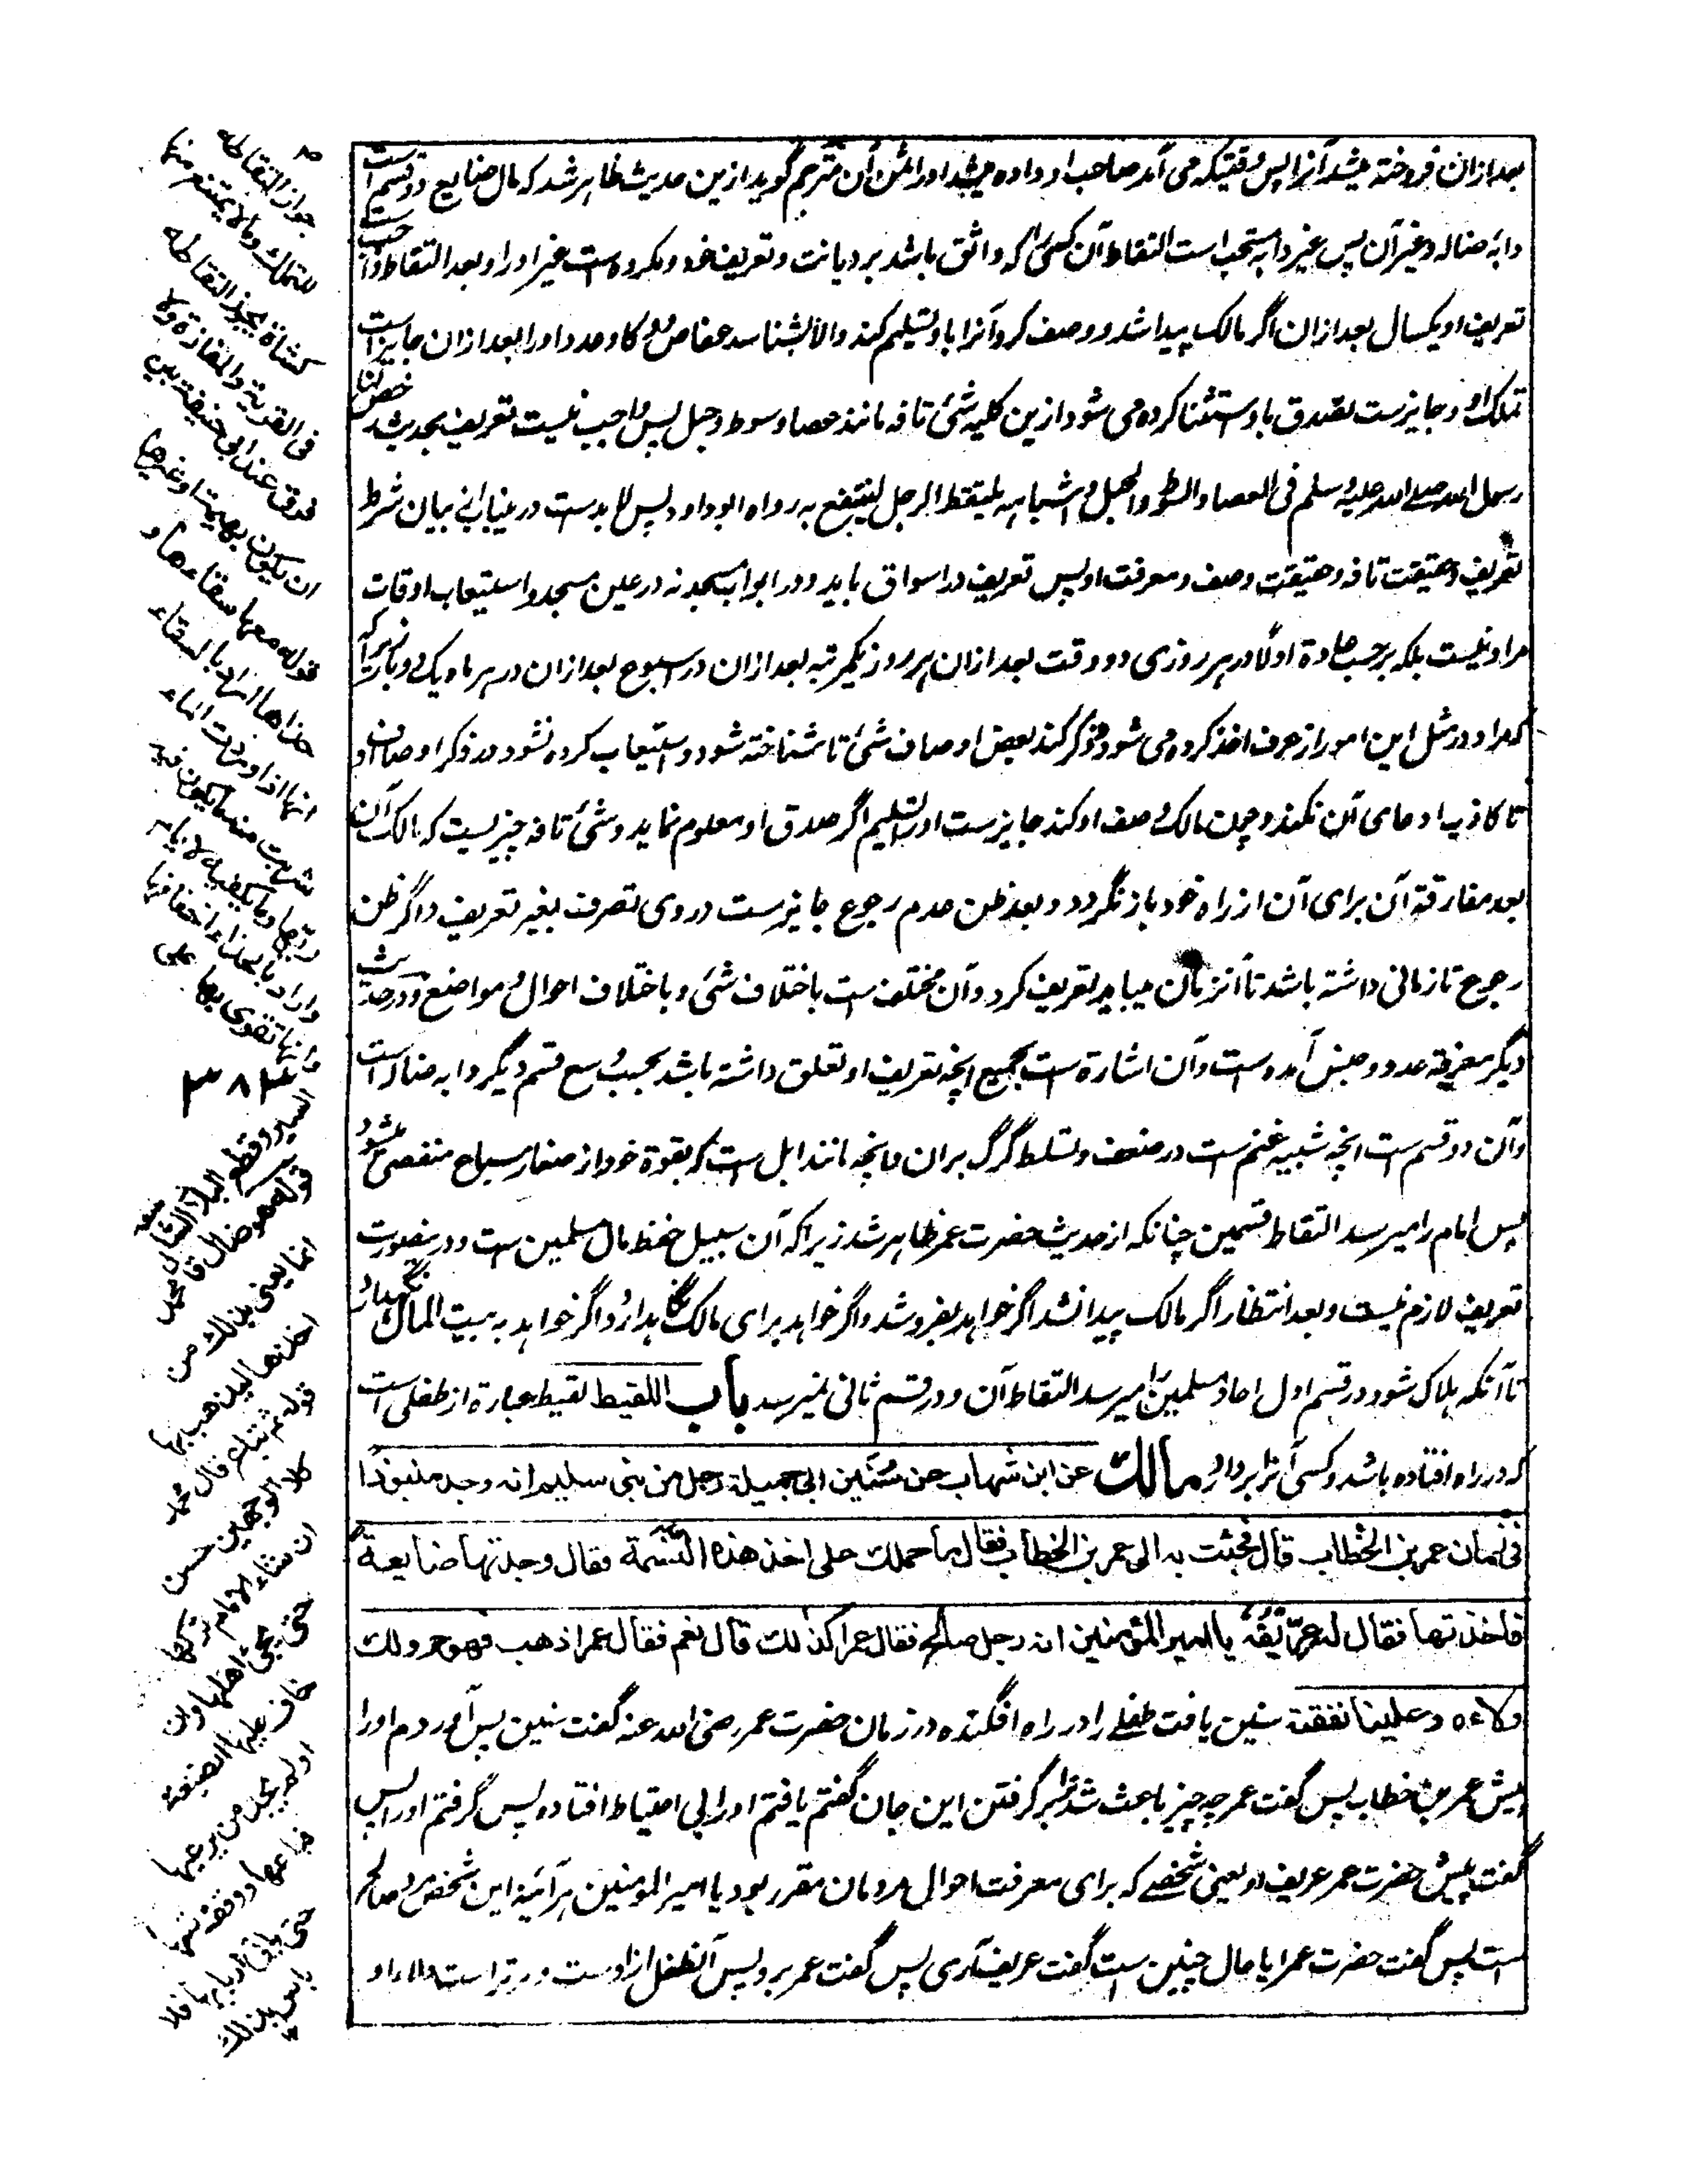 بعد ازان فروخته میشد آنرا پس وقتیکه می آمد صاحب او داده میشد اورا ثمن آن مترجم گوید ازین حدیث ظاهر شد که مال ضایع دو قسم است
دابه ضاله و غیر آن پس غیر دابه مستحب است التقاط آن کسی را که واثق باشد بر دیانت و تعریف خود و مکروه است غیر او را و بعد التقاط واجب است
تعریف او یکسال بعد ازان اگر مالک پیدا شد و وصف کرد آنرا باو تسلیم کند والا بشناسد عفاص و وکا و عدد اورا بعد ازان جایز است
تملک او و جایز ست تصدق باو و استثنا کرده می شود ازین کلیه شئ تافه مانند عصا و سوط و حبل پس واجب نیست تعریف بحدیث رخص لنا
رسول الله صلے الله علیه وسلم فی العصا والسوط والحبل و اشباهه یلتقط الرجل ینتفع به رواه ابوداود پس لا بدست درینباب از بیان شرط
تعریف و حقیقت تافه و حقیقت وصف و معرفت او پس تعریف در اسواق باید و در ابواب مسجد نه در عین مسجد و استیعاب اوقات
مراد نیست بلکه بر حسب عادة اولا در هر روزی دو وقت بعد ازان هر روز یکمرتبه بعد ازان در اسبوع بعد ازان در هر ماه یک دو بار زیرا که
که مراد در مثل این امور از عرف اخذ کرده می شود و ذکر کند بعض اوصاف شئ تا شناخته شود و استیعاب کرده نشود در ذکر اوصاف او
تا کاذب ادعای آن نکند و چون مالک وصف او کند جایز ست اورا تسلیم اگر صدق او معلوم نماید و شئ تافه چیزیست که مالک آن
بعد مفارقة آن برای آن از راه خود باز نگردد و بعد ظن عدم رجوع جایز ست در وی تصرف بغیر تعریف و اگر ظن
رجوع تا زمانی داشته باشد تا آنزمان میباید تعریف کرد و آن مختلف ست باختلاف شئ و باختلاف احوال و مواضع و در حدیث
دیگر معرفة عدد و جنس آمده ست و آن اشارة ست بجمیع انچه تعریف او تعلق داشته باشد بحسب وسع قسم دیگر دابه ضاله است
و آن دو قسم ست انچه شبیه غنم ست در ضعف و تسلط گرگ بران و انچه مانند ابل ست که بقوة خود از صغار سباع متفصی میشود
پس امام را میرسد التقاط قسمین چنانکه از حدیث حضرت عمر ظاهر شد زیرا که آن سبیل حفظ مال مسلمین ست و درینصورت
تعریف لازم نیست و بعد انتظار اگر مالک پیدا نشد اگر خواهد بفروشد و اگر خواهد برای مالک نگاهدارد و اگر خواهد به بیت المال نگهدارد
تا آنکه هلاک شود و در قسم اول احاد مسلمین را میرسد التقاط آن و در قسم ثانی نمیرسد باب اللقیط لقیط عبارة از طفلی است
که در راه افتاده باشد و کسی آنرا بردارد مالك عن ابن شهاب عن سنین ابی جمیلة رجل من بنی سلیم انه وجد منبوذا
فی زمان عمر بن الخطاب قال فجئت به الی عمر بن الخطاب فقال ما حملك علی اخذ هذه النسمة فقال وجدتها ضایعة
فاخذتها فقال له عریفه یا امیر المؤمنین انه رجل صالح فقال عمر اکذلك قال نعم فقال عمر اذهب فهو حر ولك
ولاءه وعلینا نفقته سنین یافت طفلے را در راه افگنده در زمان حضرت عمر رضی الله عنه گفت سنین پس آوردم اورا
پیش عمر بن خطاب پس گفت عمر چه چیز باعث شد ترا بر گرفتن این جان گفتم یافتم اورا بی احتیاط افتاده پس گرفتم اورا پس
گفت پیش حضرت عمر عریف او یعنی شخصے که برای معرفت احوال مردمان مقرر بود یا امیر المومنین هر آئینه این شخص مرد صالح
است پس گفت حضرت عمر آیا حال چنین ست گفت عریف آری پس گفت عمر برو پس آنطفل آزاد ست و ترا است ولاء او
جواز التقاطه
للتملك وما لا یمتنع منها
کشاة یجوز التقاطه
فی القریة والمفازة ولا
فرق عند ابی حنیفة بین
ان یکون بهیمة او غیرها
قوله معها سقاءها و
حذاها اراد بالسقاء
انها اذا وردت الماء
شربت منه ما یکون فیه
ریها
واراد بالحذاء اخفافها
وانها تقوی بها علی
۳۸۳
السیر وقطع البلاد
قوله فهو ضال قال محمد
انما یعنی بذلك من
اخذها لیذهب بها
قوله قال محمد
کلا الوجهین حسن
ان شاء الامام ترکها
حتی یجئ اهلها وان
خاف علیها الضیعة
او لم یجد من یرعیها
باعها ووقف ثمنها
حتی یاتی اربابها فلا
باس بذلك